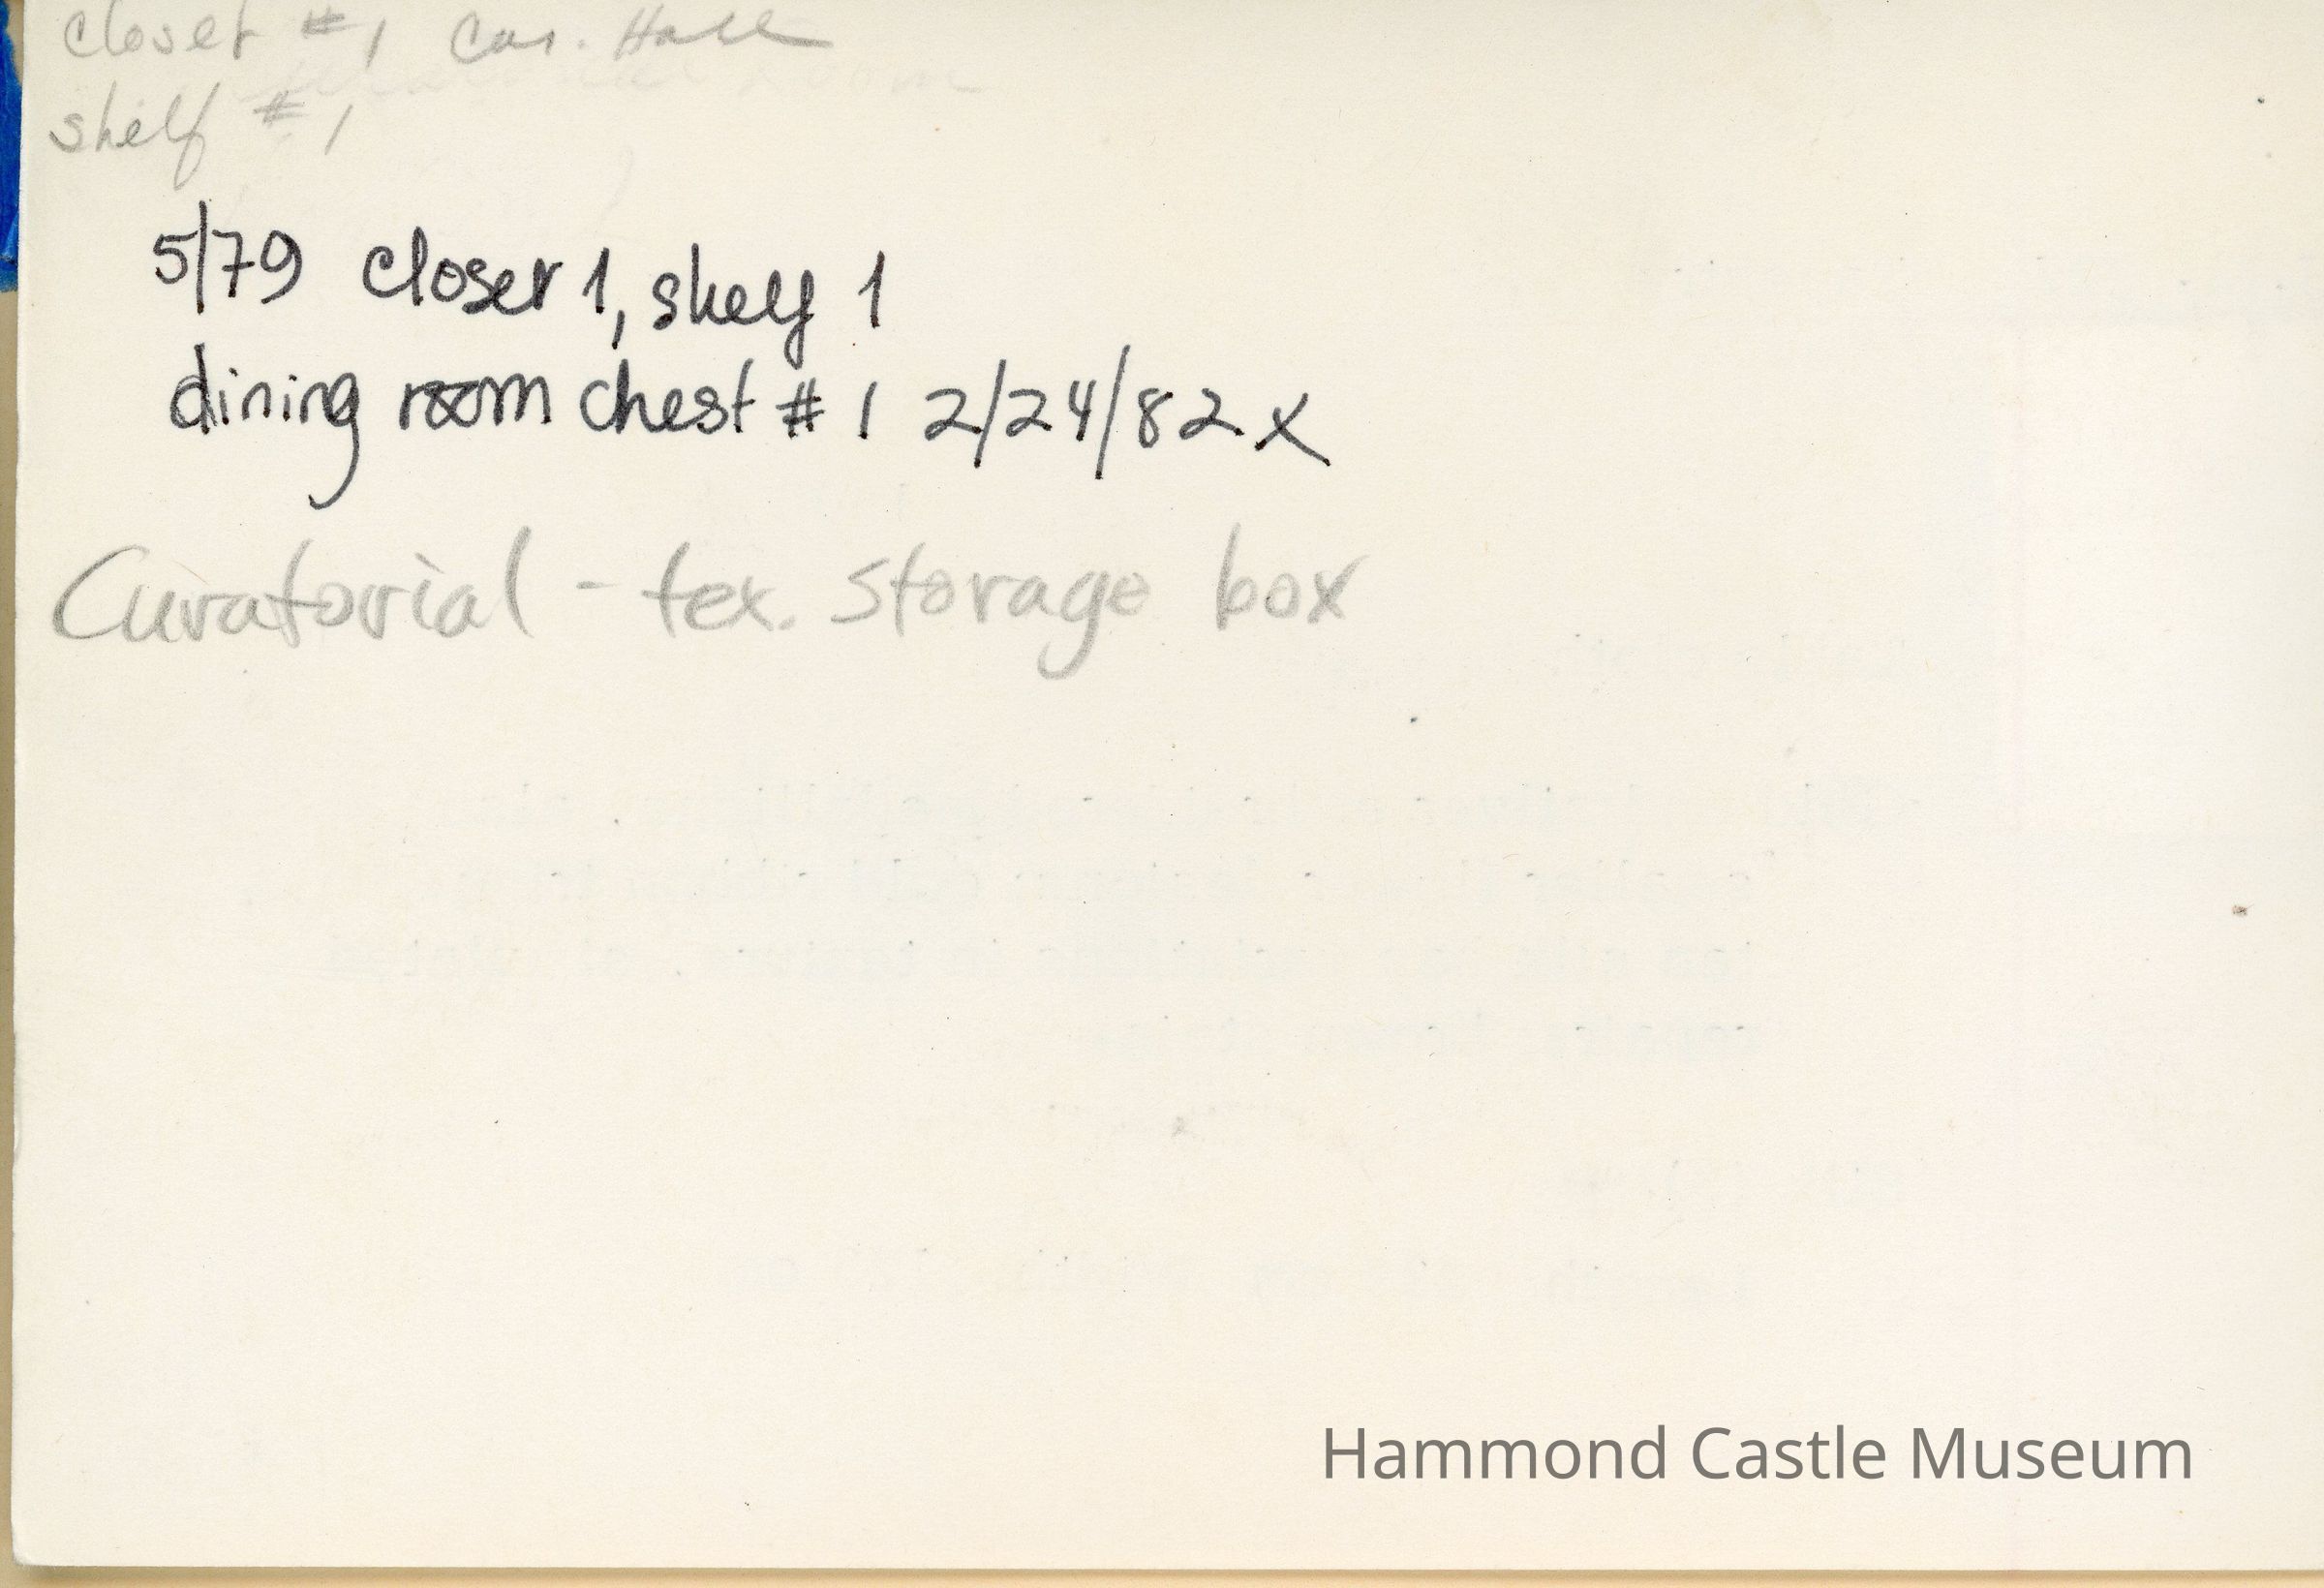 closet #1 Cas. Hall
shelf #1
5/79 closet 1, shelf 1
dining room chest #1 2/24/82 x
Curatorial - tex. storage box
Hammond Castle Museum